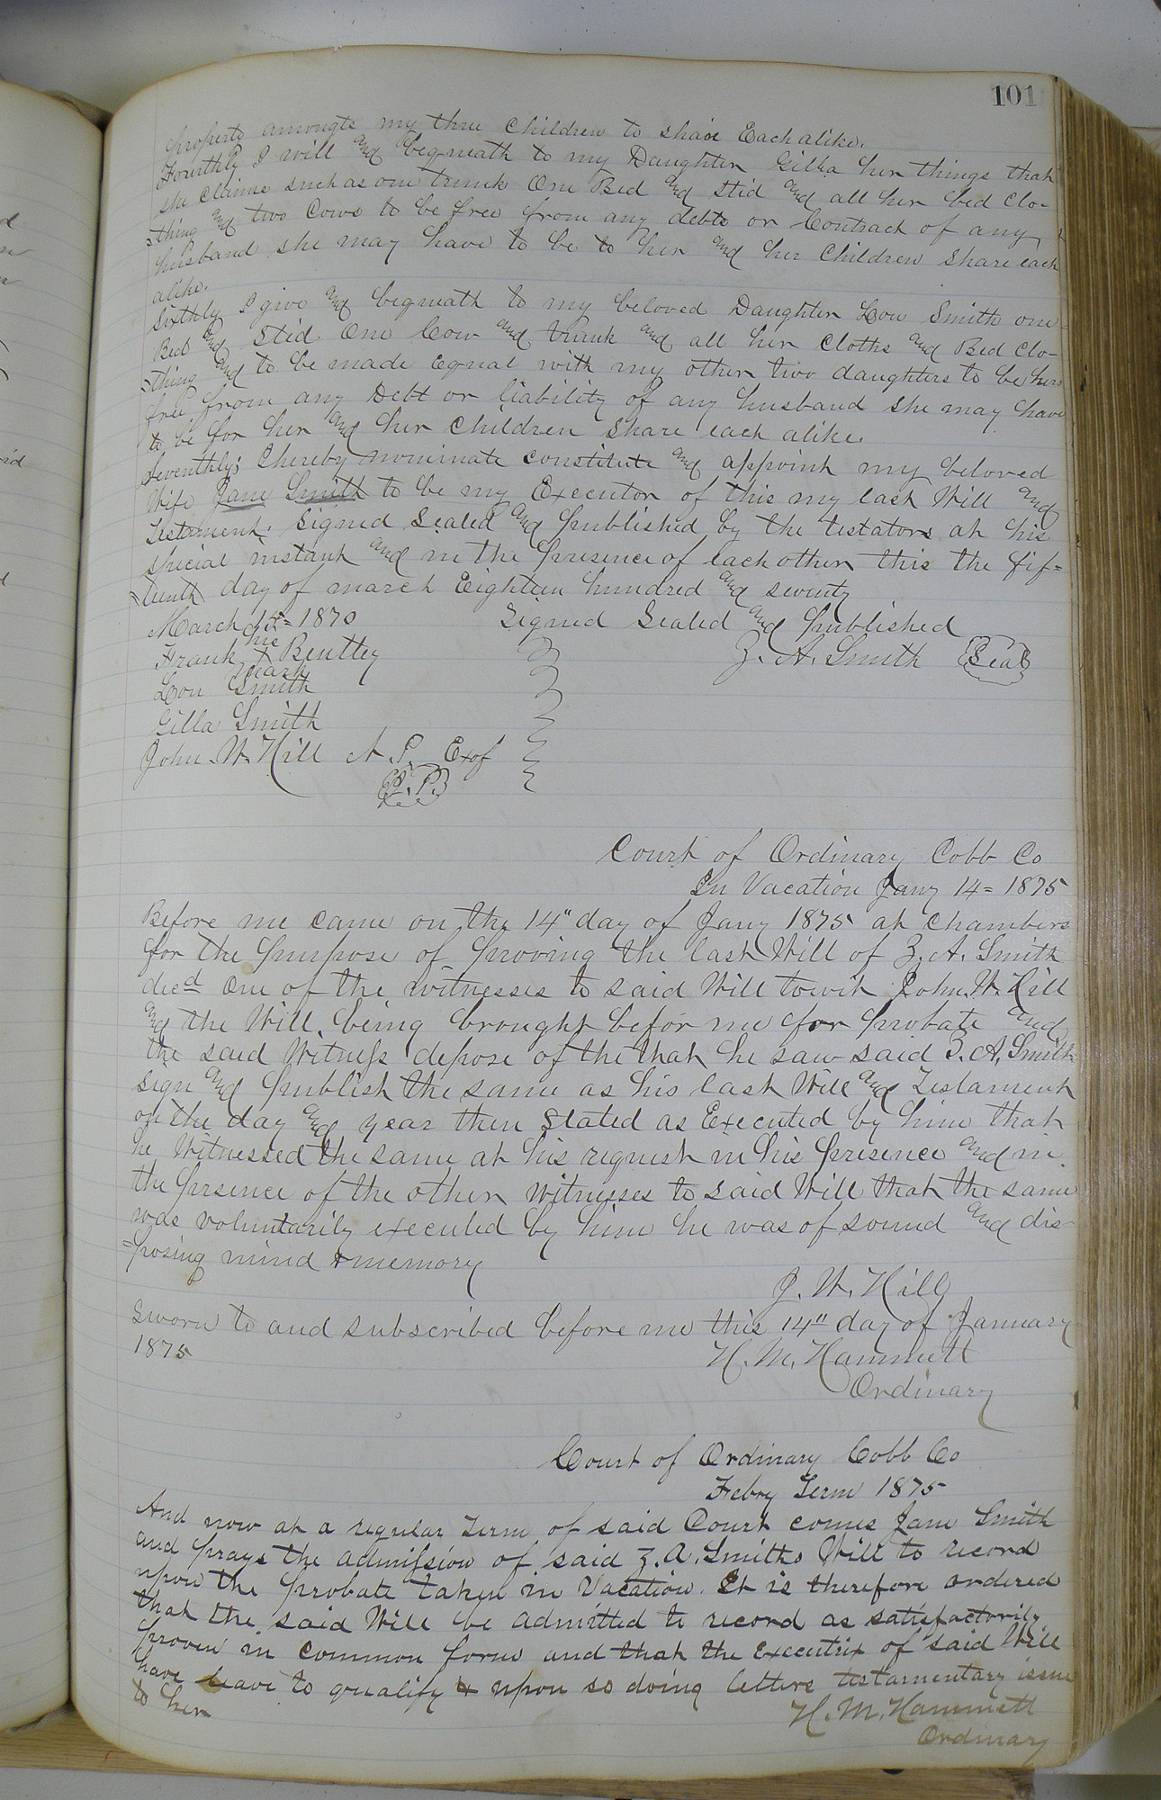 101
property amongts my three Children to share Each alike.
Fourthly I will and beqneath to my Daughter Gilla her things that
she claims such as one trunk One Bed and Stid and all her bed clo-
-thing and two Cows to be free from any debts or Contract of any
husband she may have to be to her and her Children Share each
alike.
Sixthly I give and beqneath to my beloved Daughter Lou Smith one
Bed and Stid One Cow and trunk and all her Cloths and Bed Clo-
-thing and to be made equal with my other two daughters to be hers
free from any Debt or liability of any husband she may have
to be for her and her Children Share each alike.
Seventhly; I hereby nominate constitute and appoint my beloved
Wife Jane Smith to be my Executor of this my last Will and
Testament. Signed Sealed and published by the testators at his
special instant and in the presence of each other this the fif-
-teenth day of march Eighteen hundred and seventy
March 15th = 1870 Signed Sealed and published
Frank his X mark Bentley Z. A. Smith (Seal)
Lou Smith
Gilla Smith
John. W. Hill N. P. Exof
J. P.
Court of Ordinary Cobb Co
In Vacation Jany 14 = 1875
Before me came on the 14" day of Jany 1875 at Chambers
for the purpose of proving the last Will of Z. A. Smith
decd One of the witnesses to said Will towit John. W. Hill
and the Will being brought befor me for probate and
the said Witness depose of the that he saw said Z. A. Smith
sign and publish the same as his last Will and Testament
on the day and year then Stated as Executed by him that
he Witnessed the same at his request in his presence and in
the prsence of the other witnesses to said Will that the same
was voluntarily executed by him he was of sound and dis-
-posing mind & memory
J. W. Hill
Sworn to and subscribed before me this 14" day of January
1875 H. M. Hammett
Ordinary
Court of Ordinary Cobb Co
Febry Term 1875
And now at a regular Term of said Court comes Jane Smith
and prays the admission of said Z. A. Smiths Will to record
upon the probate taken in Vacation. It is therefore ordered
that the said Will be admitted to record as satisfactorily
proven in common form and that the Executrix of said Will
have leave to qualify & upon so doing letters testamentary issue
to her H. M. Hammett
Ordinary